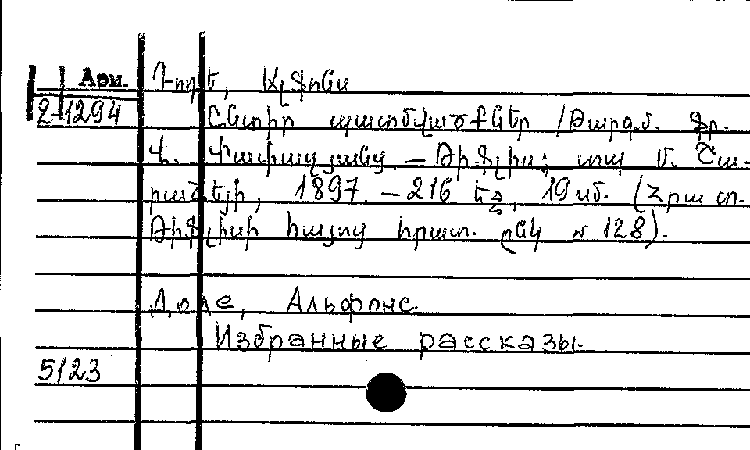 Арм. Դոդե, Ալֆոնս
2-1294 Ընտիր պատմվածքներ /Թարգմ. ֆր.
Վ. Փափազյանց. — Թիֆլիս; տպ. Մ. Շա-
րաձեյի, 1897. — 216 եջ, 19սմ. (Հրատ.
Թիֆլիսի հայոց հրատ. ընկ № 128).
Доде, Альфонс.
Избранные рассказы.
5123